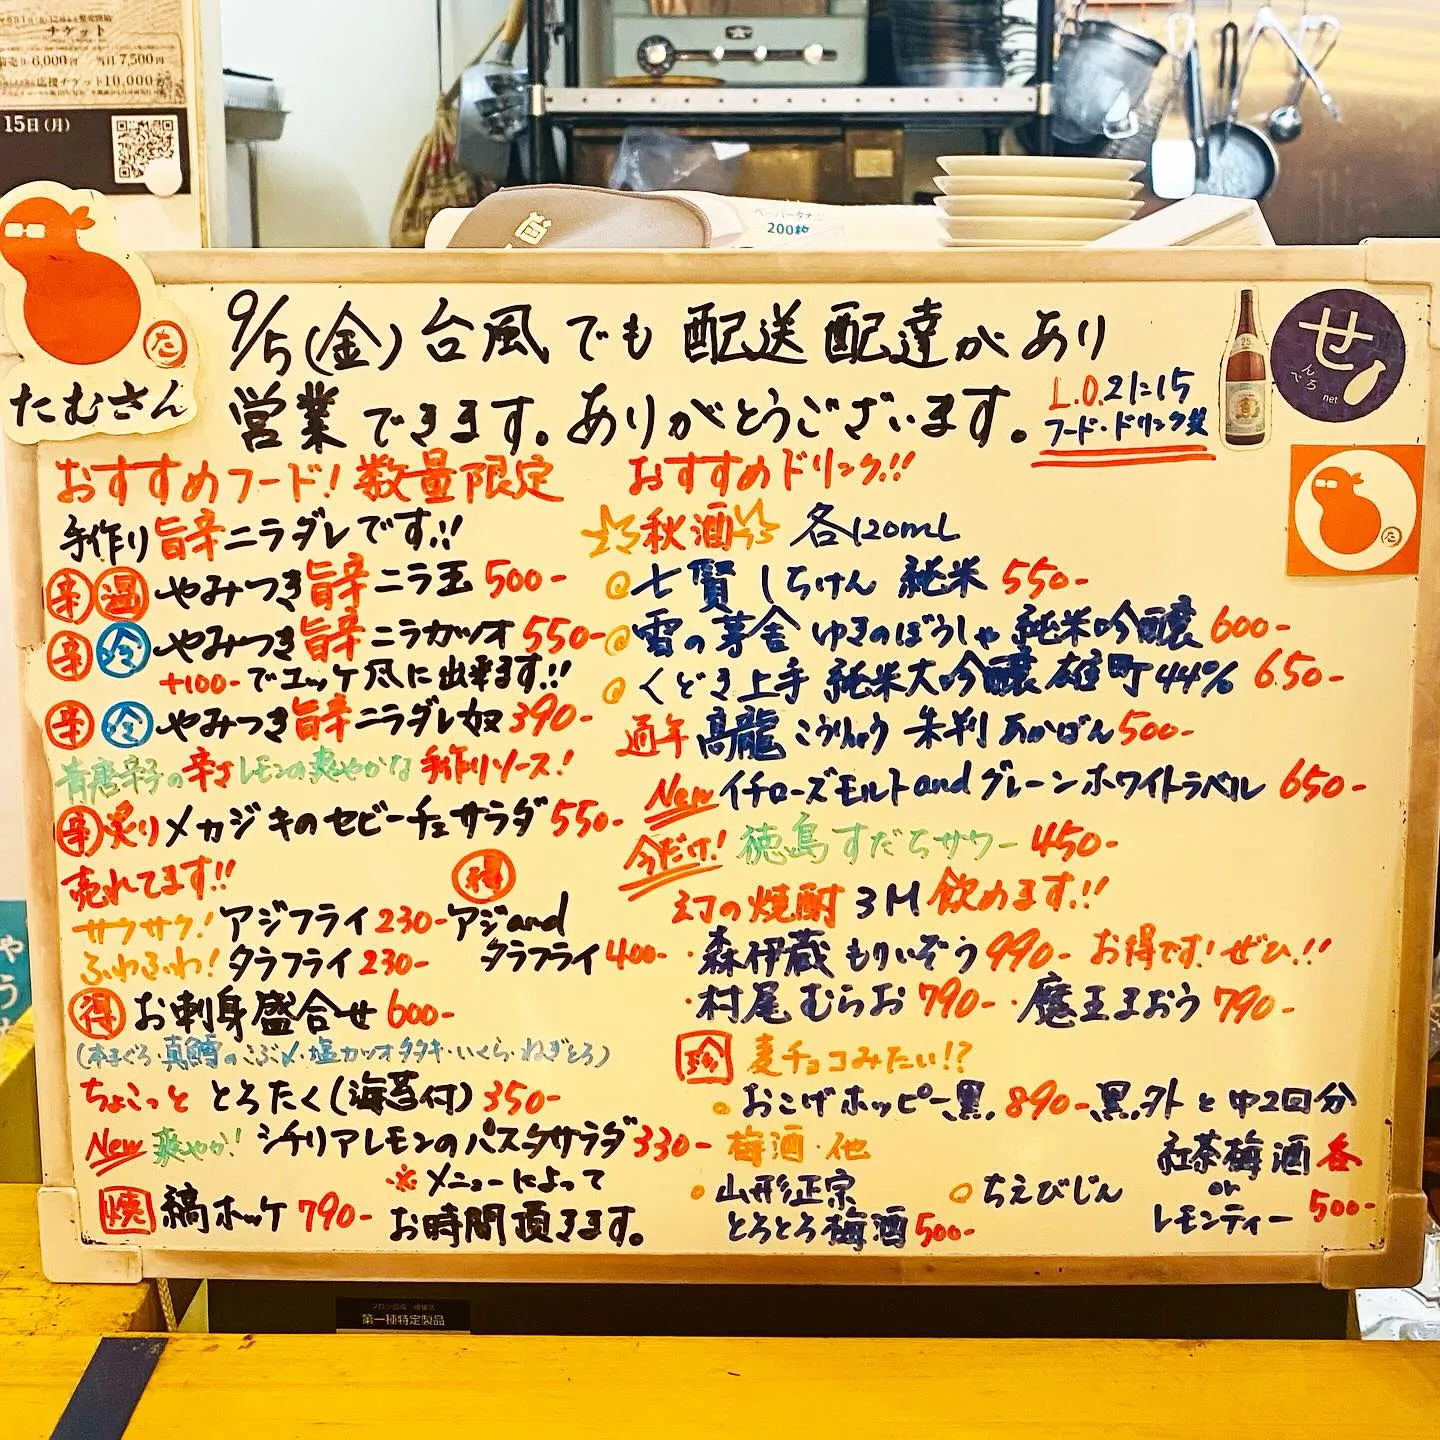 チケット
6,000円 当日 7,500円
応援チケット10,000
15日(月)
ペーパータオル
200枚
た
たむさん
せ
んべろ
net
25
9/5(金)台風でも配送配達があり
営業できます。ありがとうございます。
L.O.21:15
フード・ドリンク共
おすすめフード!数量限定
手作り旨辛ニラダレです!!
辛 温 やみつき旨辛ニラ玉 500-
辛 冷 やみつき旨辛ニラカツオ 550-
+100-でユッケ風に出来ます!!
辛 冷 やみつき旨辛ニラダレ奴 390-
青唐辛子の辛さレモンの爽やかな手作りソース!
辛 炙りメカジキのセビーチェサラダ 550-
売れてます!!
サクサク!アジフライ 230-
ふわふわ!タラフライ 230-
得
アジand
タラフライ 400-
得 お刺身盛合せ 600-
(本まぐろ・真鯛のこぶ〆・塩カツオタタキ・いくら・ねぎとろ)
ちょこっと とろたく(海苔付) 350-
New 爽やか!シチリアレモンのパスタサラダ 330-
焼 縞ホッケ 790-
※メニューによって
お時間頂きます。
おすすめドリンク!!
秋酒 各120mL
七賢 しちけん 純米 550-
雪の茅舎 ゆきのぼうしゃ 純米吟醸 600-
くどき上手 純米大吟醸 雄町44% 650-
通年 高龍 こうりゅう 朱判 あかばん 500-
New イチローズモルトandグレーンホワイトラベル 650-
今だけ!徳島すだちサワー 450-
幻の焼酎 3M 飲めます!!
・森伊蔵 もりいぞう 990- お得です!ぜひ!!
・村尾 むらお 790- ・魔王まおう 790-
珍 麦チョコみたい!?
おこげホッピー黒 890- 黒,外と中2回分
梅酒・他
山形正宗
とろとろ梅酒 500-
ちえびじん
紅茶梅酒
or
レモンティー
各
500-
第一種特定製品